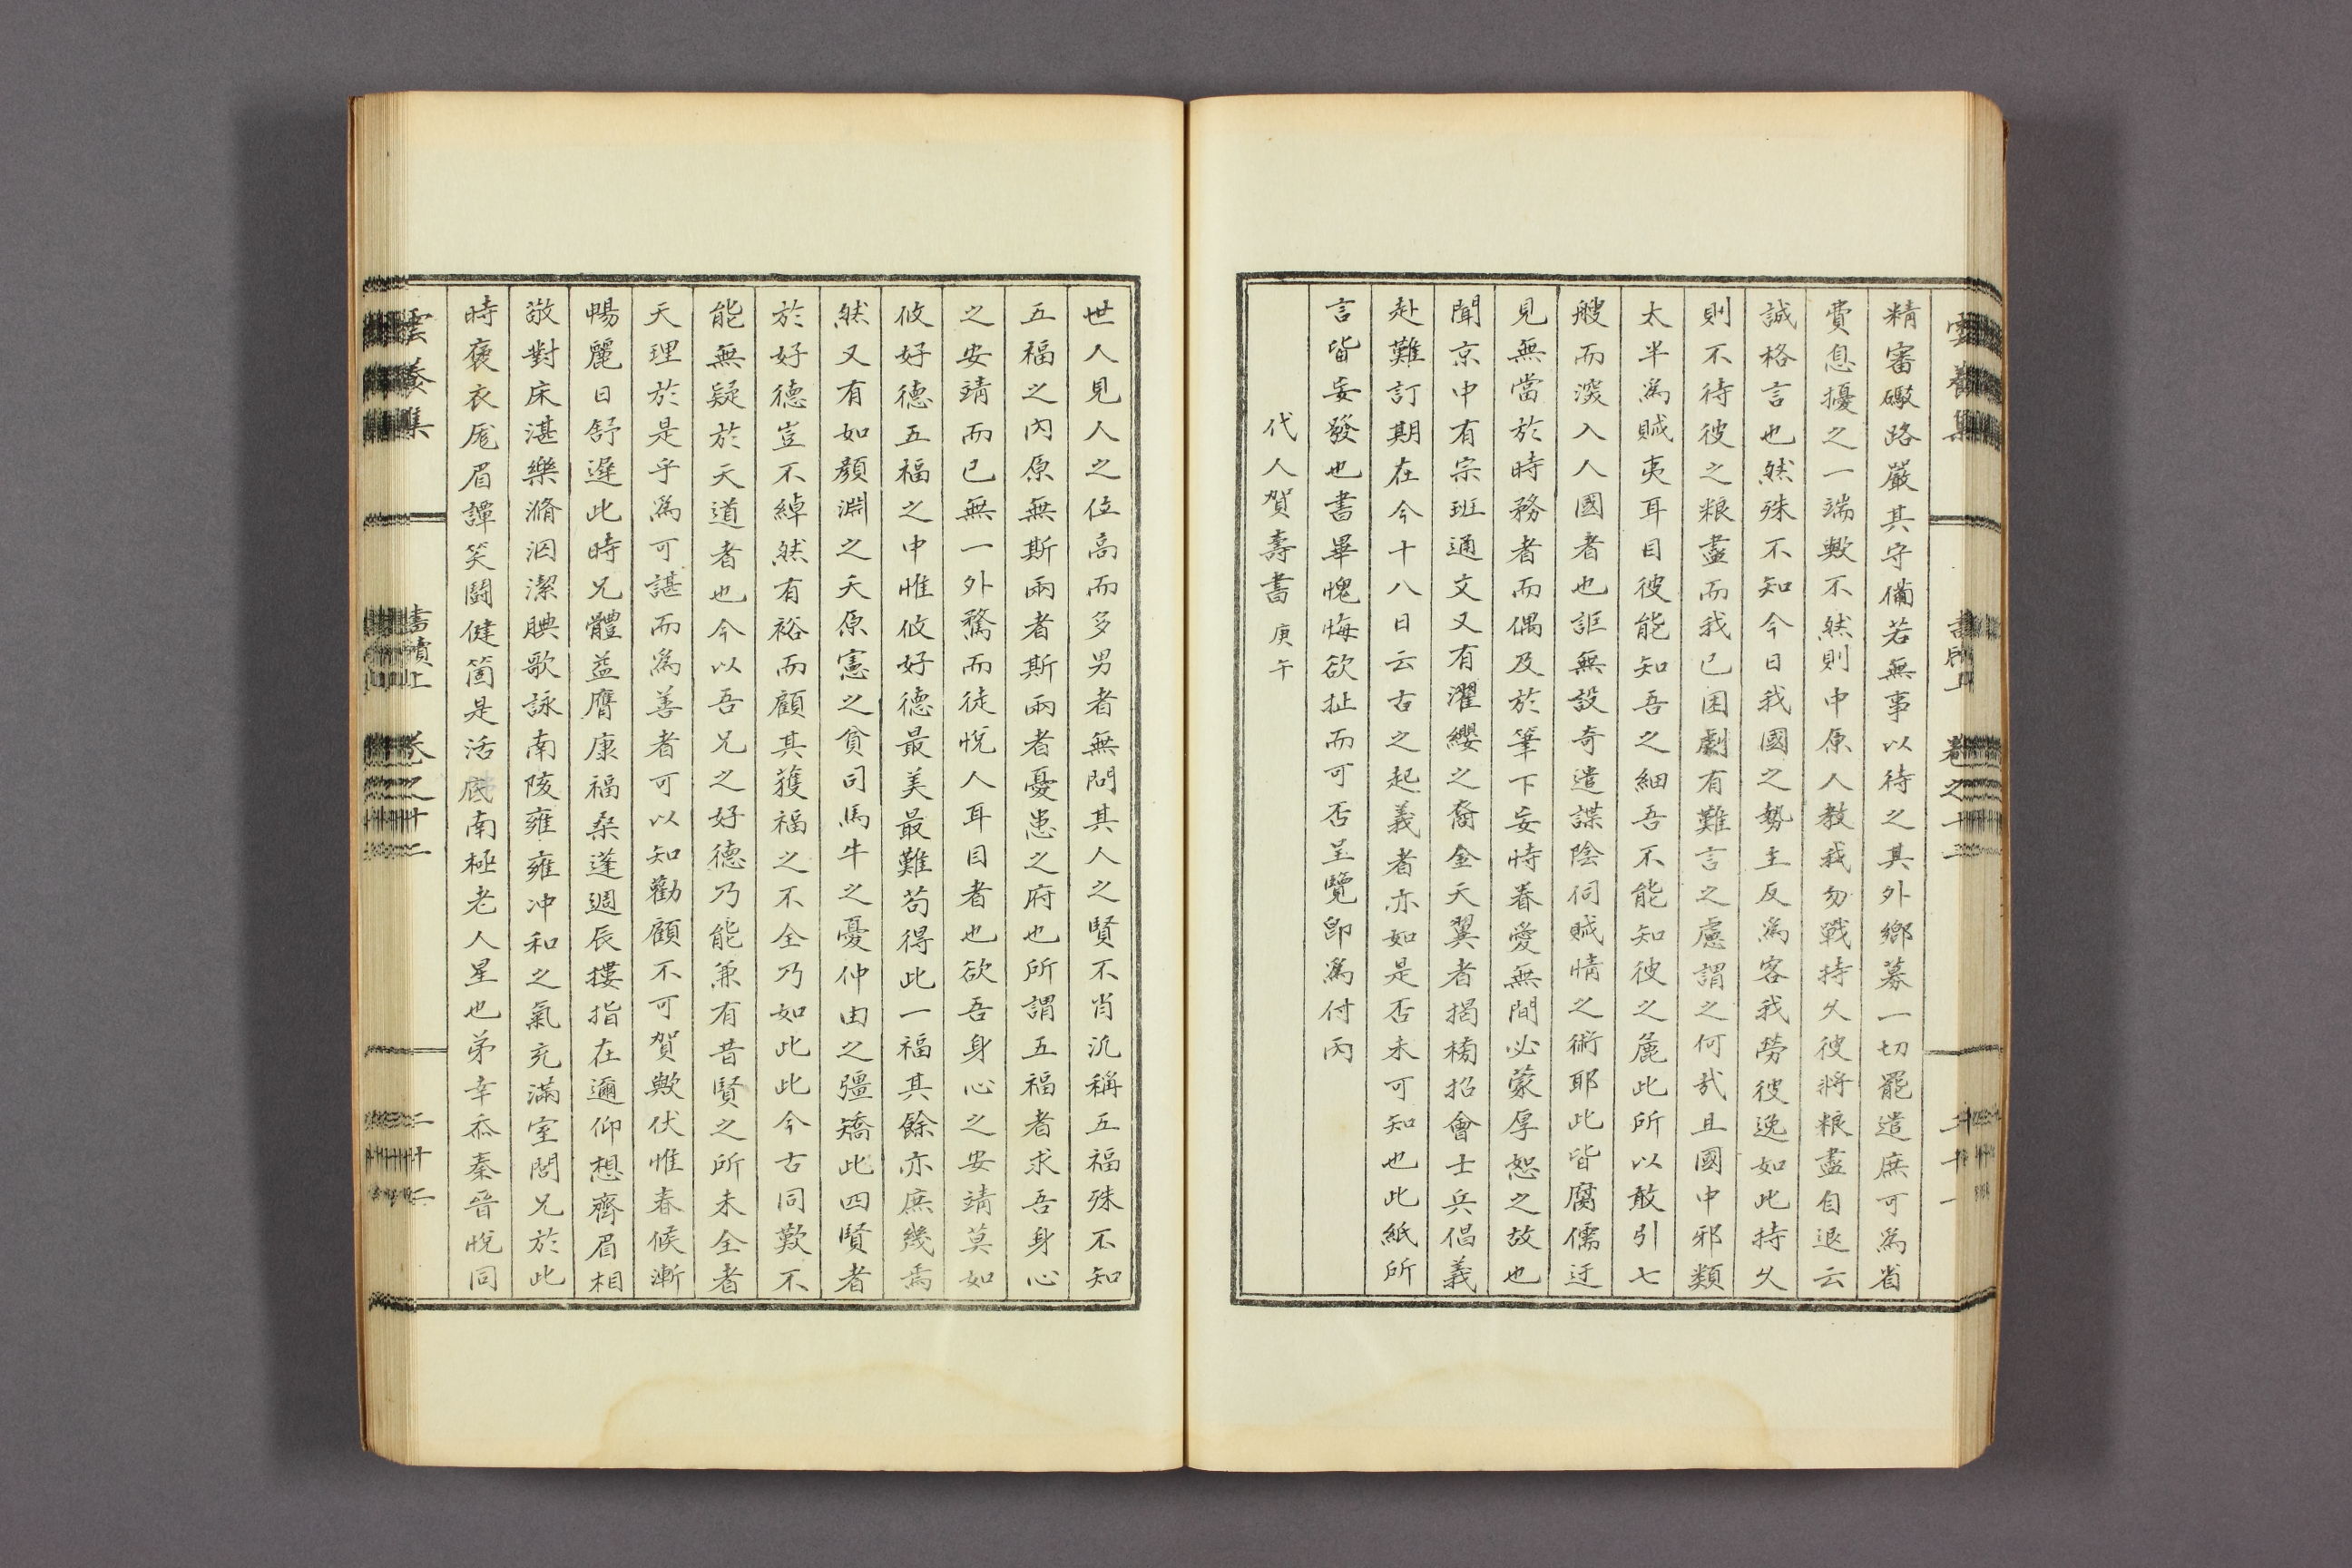 雲養集 書牘上 卷之十一 二十一
精審礮路嚴其守備若無事以待之其外鄉募一切罷遣庶可爲省
費息擾之一端歟不然則中原人教我勿戰持久彼將粮盡自退云
誠格言也然殊不知今日我國之勢主反爲客我勞彼逸如此持久
則不待彼之粮盡而我已困劇有難言之慮謂之何哉且國中邪類
太半爲賊夷耳目彼能知吾之細吾不能知彼之麁此所以敢引七
艘而深入人國者也詎無設奇遣諜陰伺賊情之術耶此皆腐儒迂
見無當於時務者而偶及於筆下妄恃眷愛無間必蒙厚恕之故也
聞京中有宗班通文又有濯纓之裔金天翼者揭榜招會士兵倡義
赴難訂期在今十八日云古之起義者亦如是否未可知也此紙所
言皆妄發也書畢愧悔欲扯而可否呈覽卽爲付丙
代人賀壽書 庚午
世人見人之位高而多男者無問其人之賢不肖汎稱五福殊不知
五福之內原無斯兩者斯兩者憂患之府也所謂五福者求吾身心
之安靖而已無一外騖而徒悅人耳目者也欲吾身心之安靖莫如
攸好德五福之中惟攸好德最美最難苟得此一福其餘亦庶幾焉
然又有如顏淵之夭原憲之貧司馬牛之憂仲由之彊矯此四賢者
於好德豈不綽然有裕而顧其獲福之不全乃如此此今古同歎不
能無疑於天道者也今以吾兄之好德乃能兼有昔賢之所未全者
天理於是乎爲可諶而爲善者可以知勸顧不可賀歟伏惟春候漸
暢麗日舒遲此時兄體益膺康福桑蓬週辰摟指在邇仰想齊眉相
敬對床湛樂滫泅潔腆歌詠南陔雍雍冲和之氣充滿室閤兄於此
時褒衣厖眉譚笑鬪健箇是活底南極老人星也弟幸忝秦晉悅同
雲養集 書牘上 卷之十一 二十二